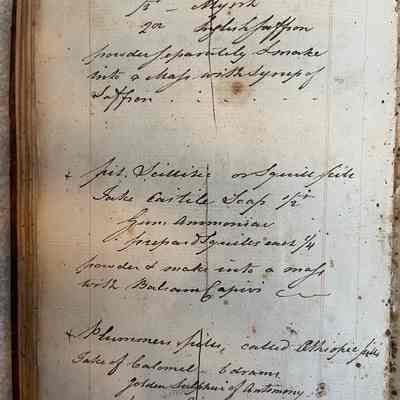 1/2 - Myrrh
2oz English Saffron
powder seperately & make
into a Mass with Syrup of
Saffron
pil. Scillitic or Squill pills
Take Castile Soap 1/2
Gum Ammoniac
prepard Squills each 1/4
powder & make into a mass
with Balsam Capivi
Plummers pills, called Ethiopic pills
Take of Calomel - 6 drams
Golden Sulphur of Antimony